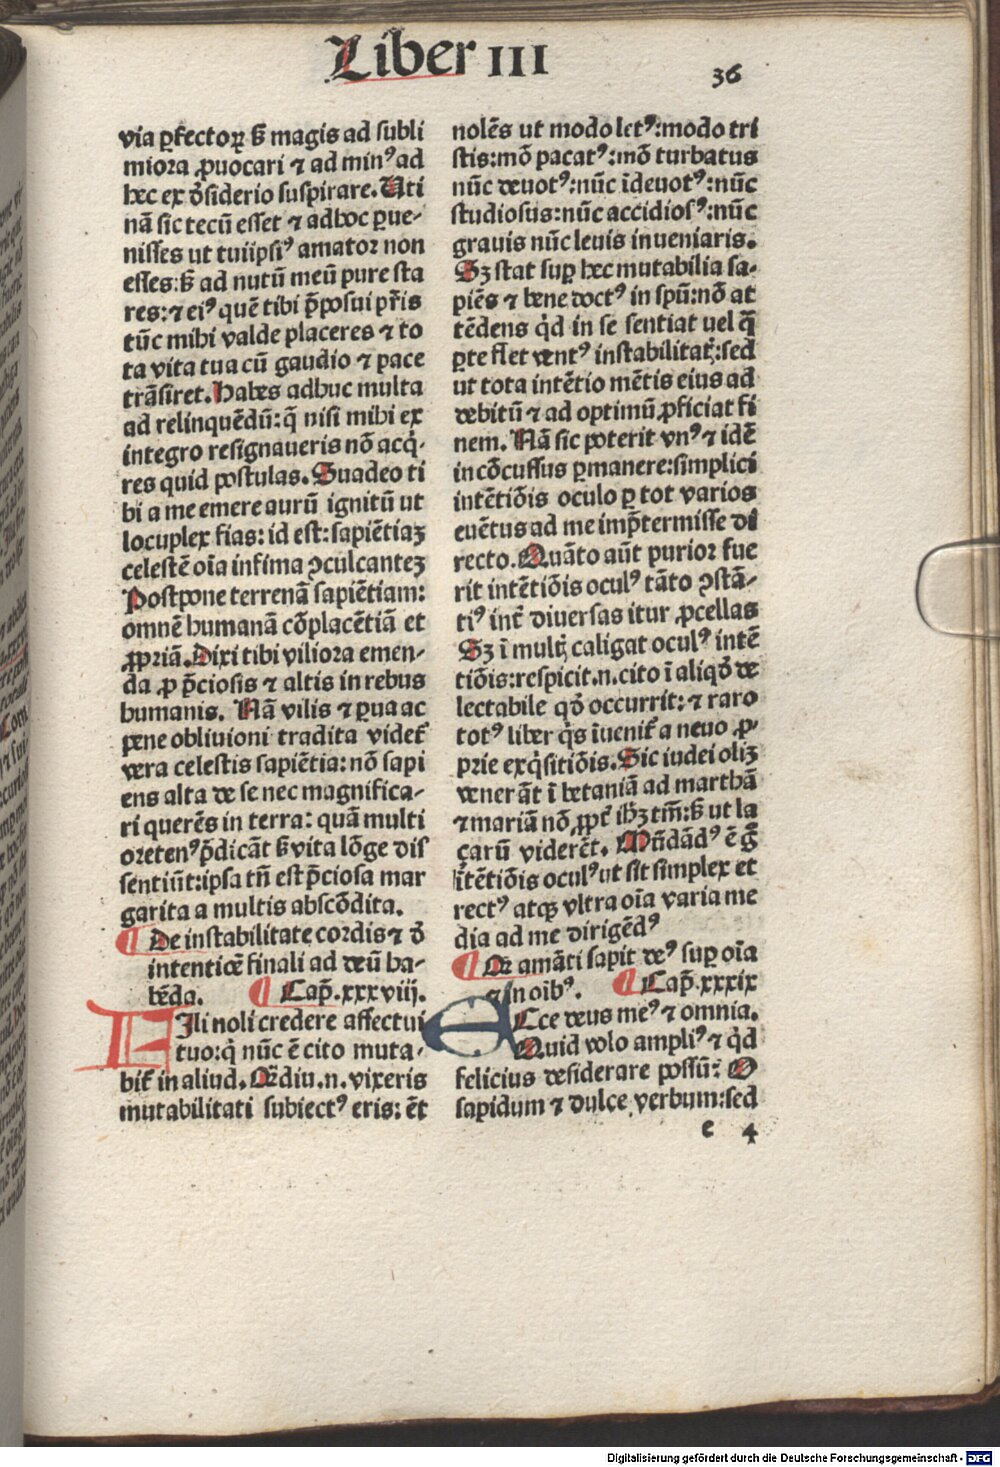 Liber III
36
via ꝑfectoꝝ sꝫ magis ad subli
miora ꝓuocari ⁊ ad minꝰ ad
hec ex ꝺ̄siderio suspirare. Uti
nā sic tecū esset ⁊ adhoc ꝑue-
nisses ut tuiipsiꝰ amator non
esses: sꝫ ad nutū meū pure sta
res: ⁊ eiꝰ quē tibi p̄posui pr̄is
tūc mihi valde placeres ⁊ to
ta vita tua cū gaudio ⁊ pace
trāsiret. Habes adhuc multa
ad relinquēdū: q̄ nisi mihi ex
integro resignaueris nō acq̇-
res quid postulas. Suadeo ti
bi a me emere aurū ignitū ut
locuplex fias: id est: sapiētiaꝫ
celestē oīa infima ꝯculcanteꝫ
Postpone terrenā sapiētiam:
omnē humanā cōplacētiā et
ꝓpriā. Dixi tibi viliora emen-
da ꝓ p̄ciosis ⁊ altis in rebus
humanis. Nā vilis ⁊ ꝑua ac
pene obliuioni tradita videt᷑
vera celestis sapiētia: nō sapi
ens alta de se nec magnifica-
ri querēs in terra: quā multi
oretenꝰ p̄dicāt sꝫ vita lōge dis
sentiūt: ipsa tn̄ est p̄ciosa mar
garita a multis abscōdita.
¶ De instabilitate cordis ⁊ ꝺ̄
intentiōe finali ad deū ha-
bēda. ¶ Cap̄. xxxviij.
FIli noli credere affectui
tuo: q̇ nūc ē cito muta-
bit᷑ in aliud. Qm̄diu .n. vixeris
mutabilitati subiectꝰ eris: ēt
nolēs ut modo letꝰ: modo tri
stis: mō pacatꝰ: mō turbatus
nūc deuotꝰ: nūc īdeuotꝰ: nūc
studiosus: nūc accidiosꝰ: nūc
grauis nūc leuis inueniaris.
Sꝫ stat suꝑ hec mutabilia sa-
piēs ⁊ bene doctꝰ in spū: nō at
tēdens q̇d in se sentiat uel q̄
ꝑte flet ventꝰ instabilitat̨: sed
ut tota intētio mētis eius ad
debitū ⁊ ad optimū ꝓficiat fi
nem. Nā sic poterit vnꝰ ⁊ idē
incōcussus ꝑmanere: simplici
intētiōis oculo ꝑ tot varios
euētus ad me imp̄termisse di
recto. Quāto aūt purior fue
rit intētiōis oculꝰ tāto ꝯstā-
tiꝰ int᷑ diuersas itur ꝓcellas
Sꝫ ī mult̨ caligat oculꝰ intē
tiōis: respicit .n. cito ī aliqd̄ de
lectabile qd̄ occurrit: ⁊ raro
totꝰ liber q̇s īuenit᷑ a neuo ꝓ-
prie exq̇sitiōis. Sic iudei oliꝫ
venerāt ī betaniā ad marthā
⁊ mariā nō ꝓpt᷑ ihꝫ tm̄: sꝫ ut la
çarū viderēt. Mūdādꝰ ē g̊
ītētiōis oculꝰ ut sit simplex et
rectꝰ atqꝫ vltra oīa varia me
dia ad me dirigēdꝰ
¶ Qm̄ amāti sapit deꝰ suꝑ oīa
⁊ in oībꝰ. ¶ Cap̄. xxxix
ECce deus meꝰ ⁊ omnia.
Quid volo ampliꝰ ⁊ q̇d
felicius desiderare possū? O
sapidum ⁊ dulce verbum: sed
e 4
Digitalisierung gefördert durch die Deutsche Forschungsgemeinschaft - DFG